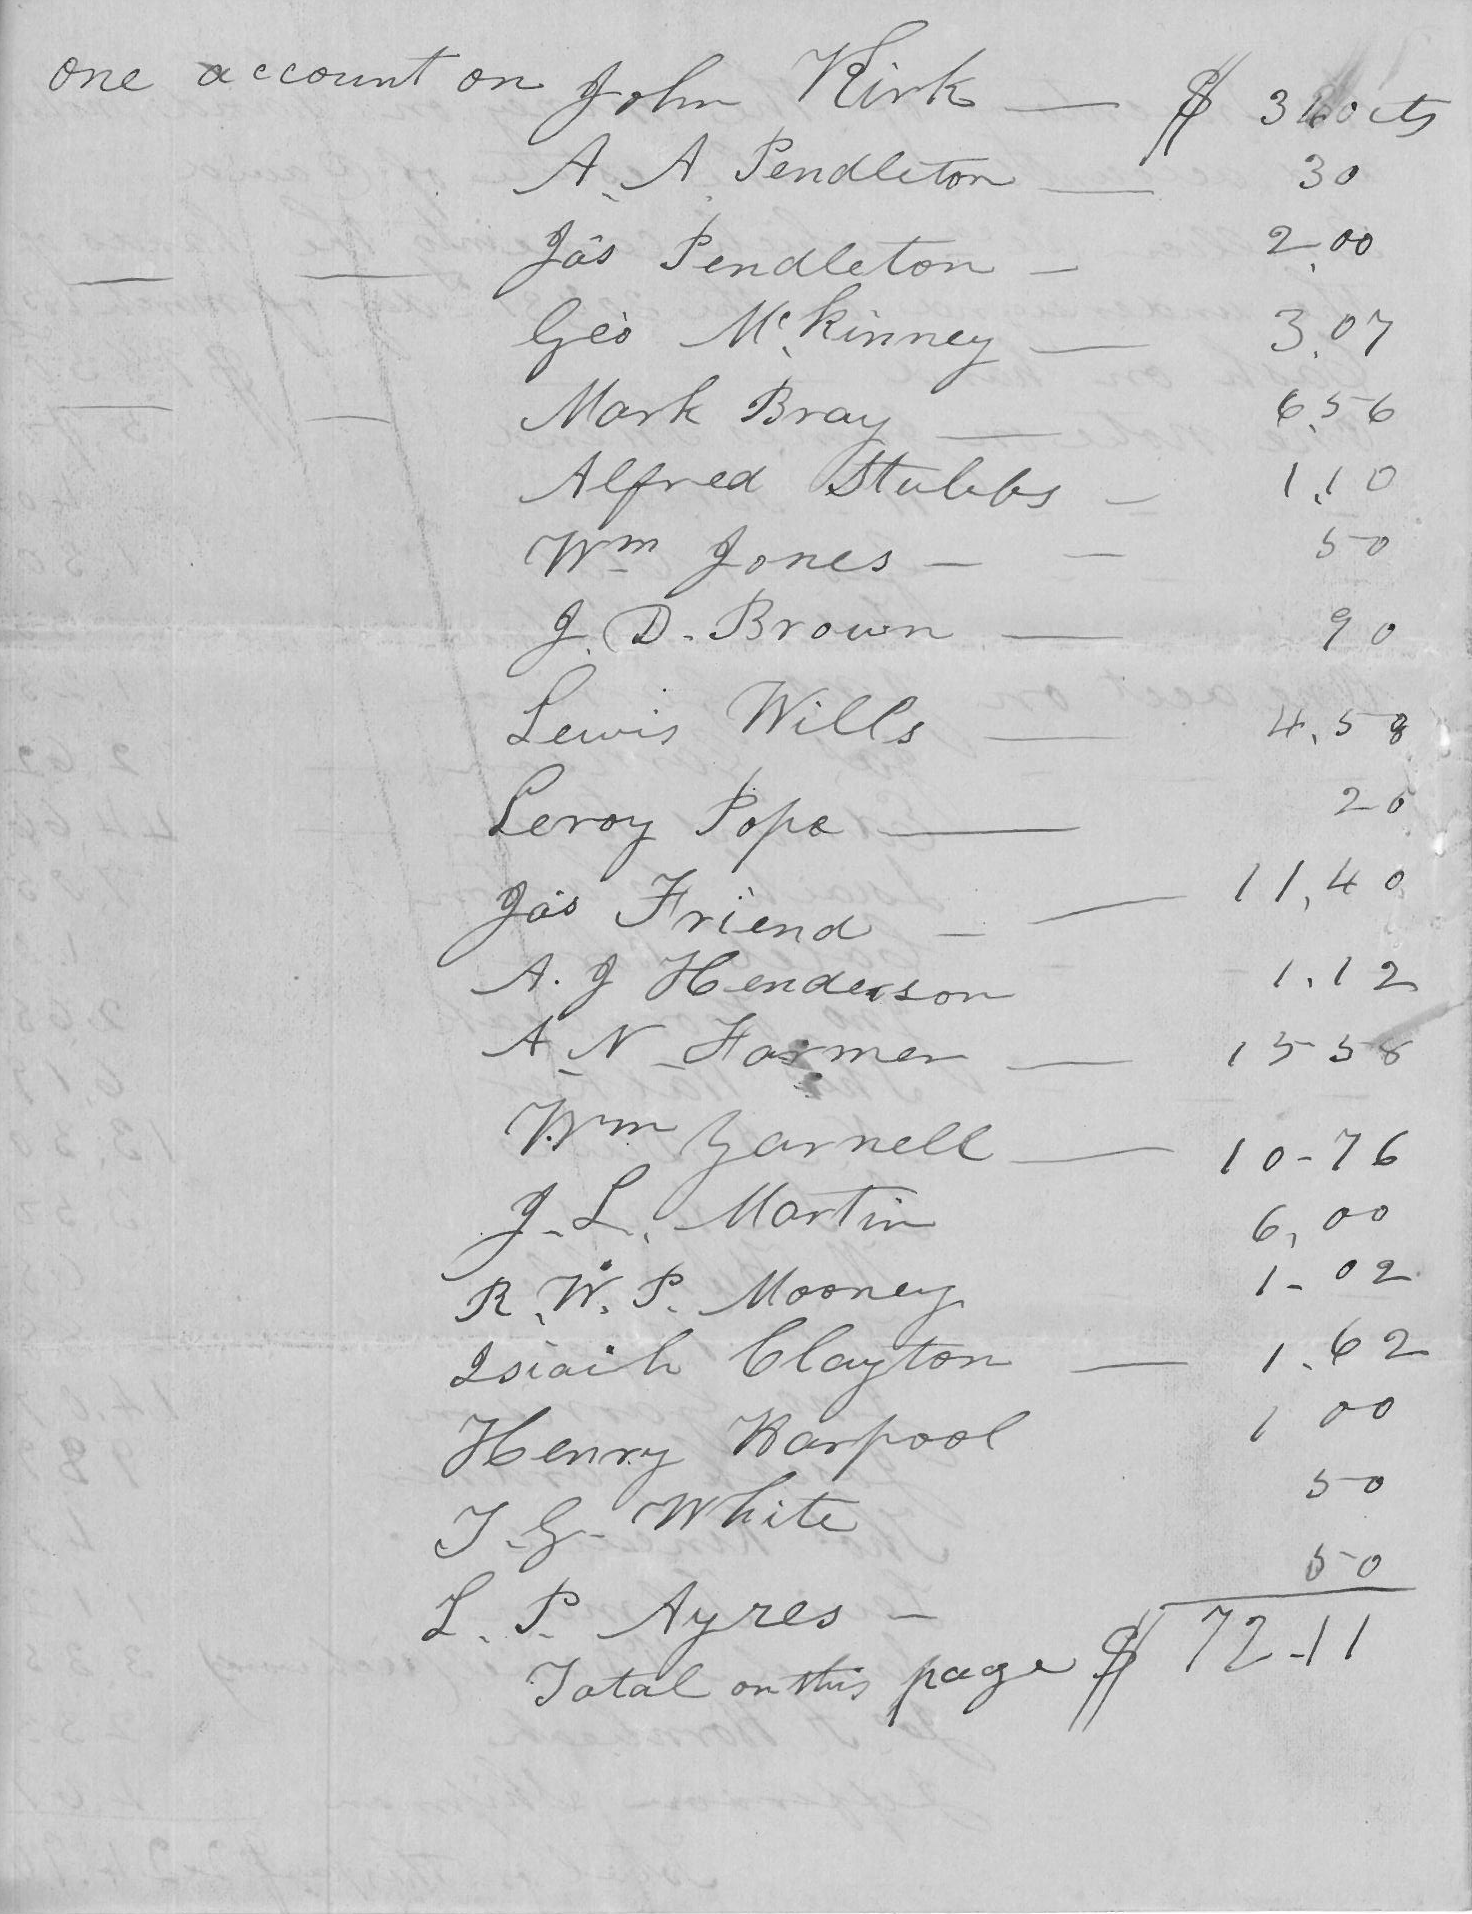 one account on John Kirk — $ cts
A. A Pendleton — 30
— — Jas Pendleton — 2.00
Geo McKinney — 3.07
— — Mark Bray — 6.56
Alfred Stubbs — 1.10
Wm Jones — — 50
J. D. Brown — 90
Lewis Wills — 4.58
Leroy Pope — 20
Jas Friend — — 11,40
A. J Henderson 1.12
A. N. Farmer — 15 58
Wm Yarnell — 10-76
J. L. Martin 6,00
R. W. P. Mooney 1-02
Isiaih Clayton — 1.62
Henry Warpool 1 00
T. G. White 50
L. P. Ayres — 50
Total on this page $ 72-11